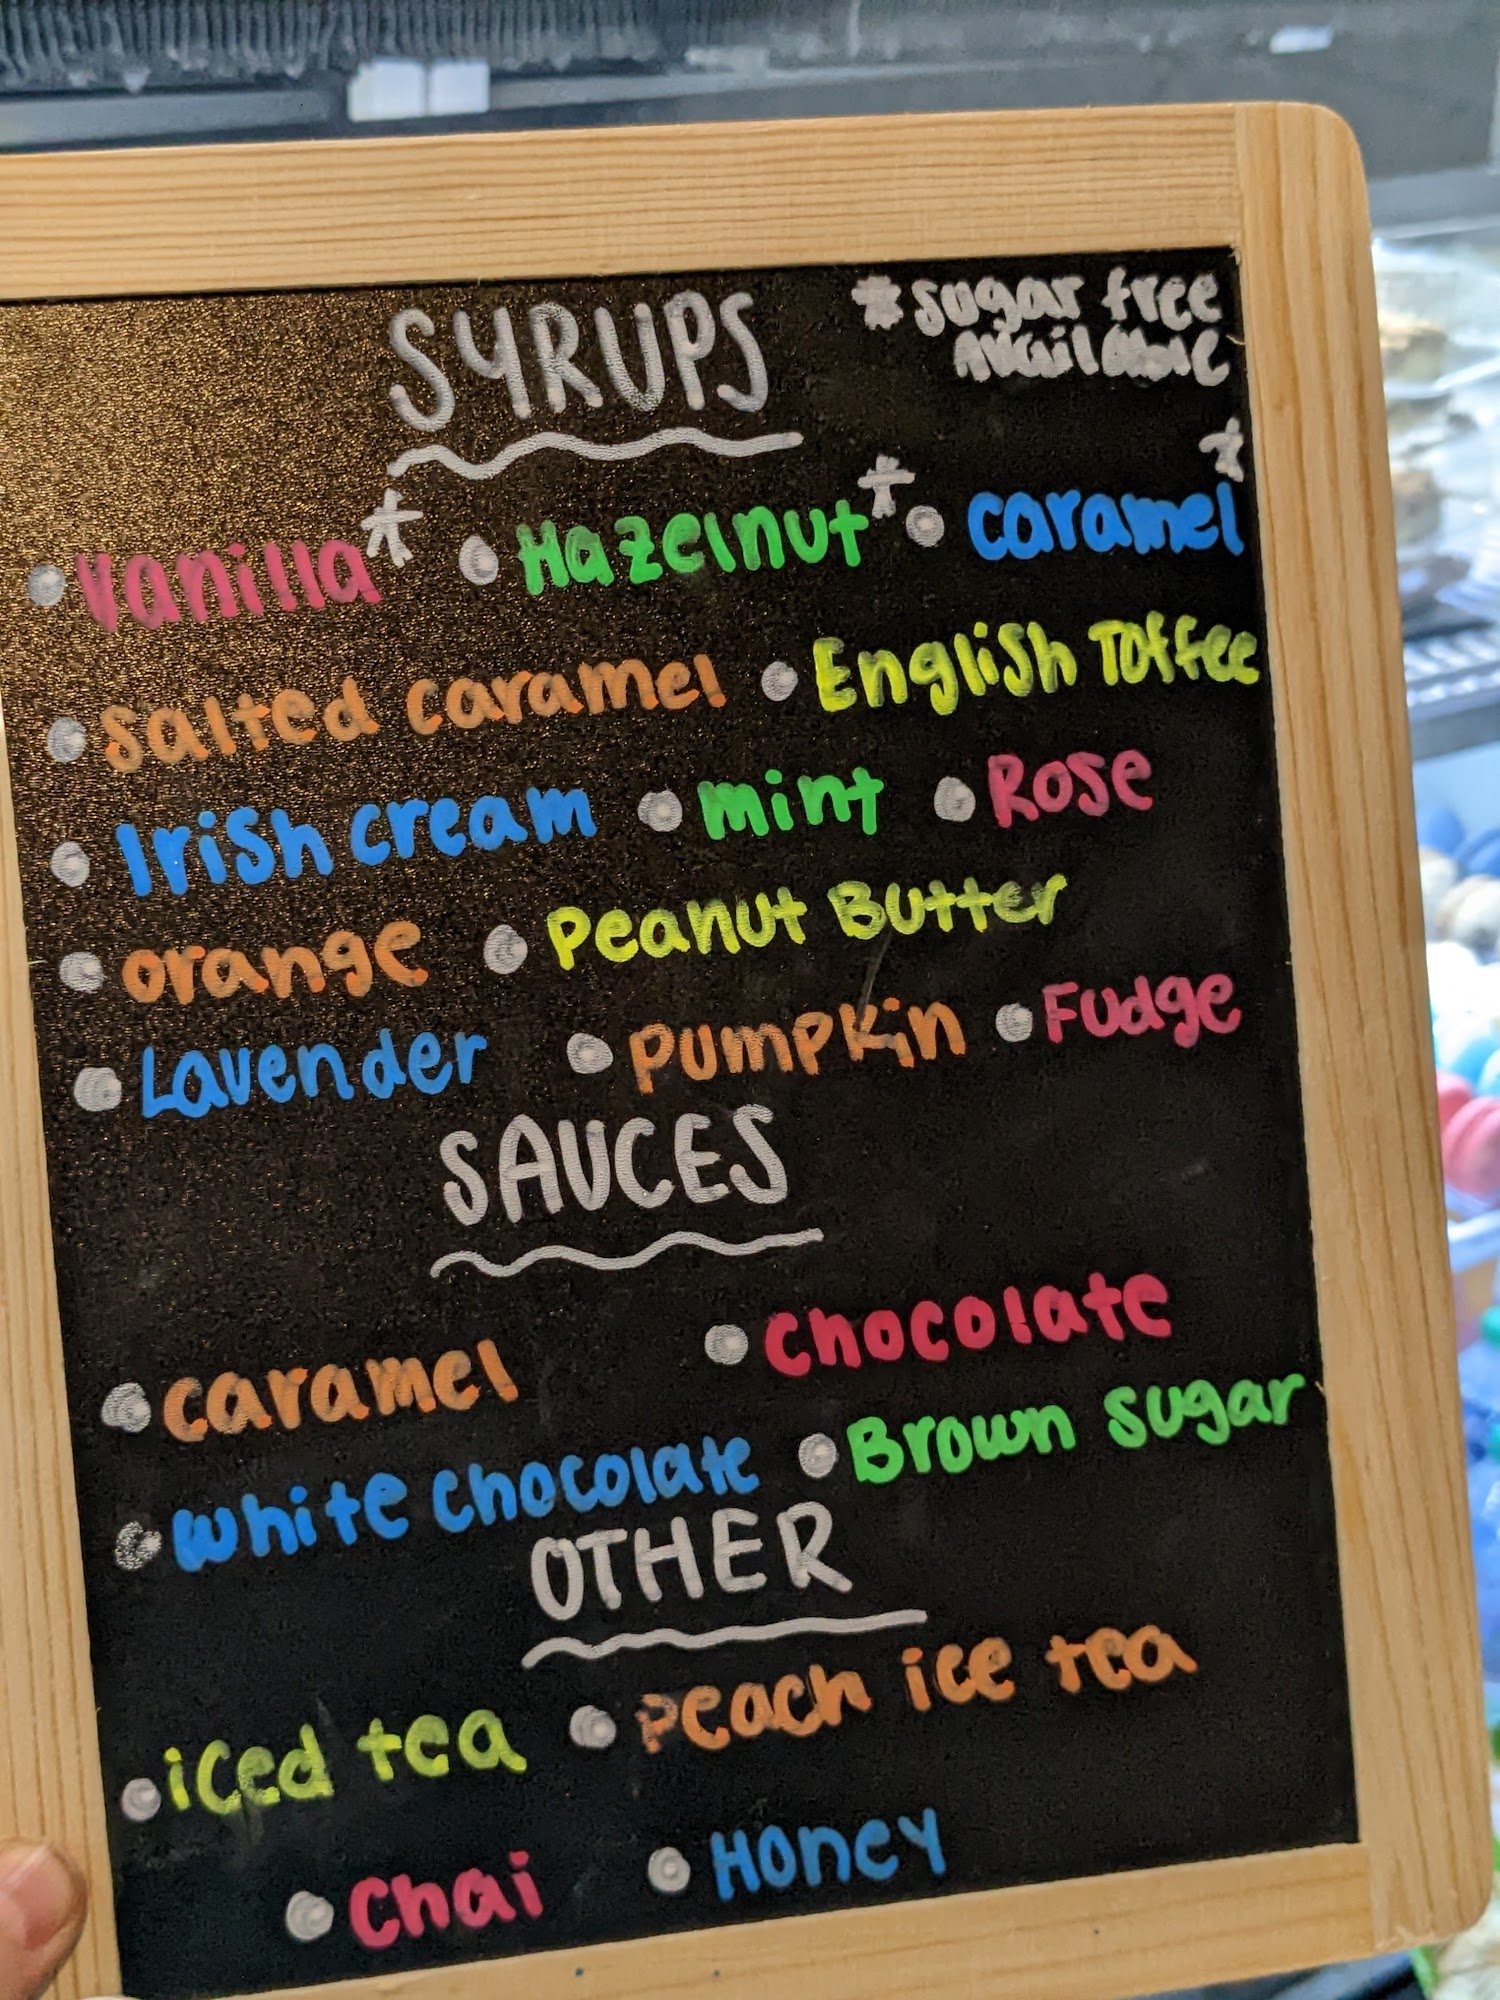 SYRUPS
*sugar free
available
• Vanilla* • Hazelnut* • caramel*
• salted caramel • English Toffee
• Irish cream • mint • Rose
• orange • Peanut Butter
• Lavender • Pumpkin • Fudge
SAUCES
• caramel • chocolate
• white chocolate • Brown sugar
OTHER
• iced tea • Peach ice tea
• Chai • Honey